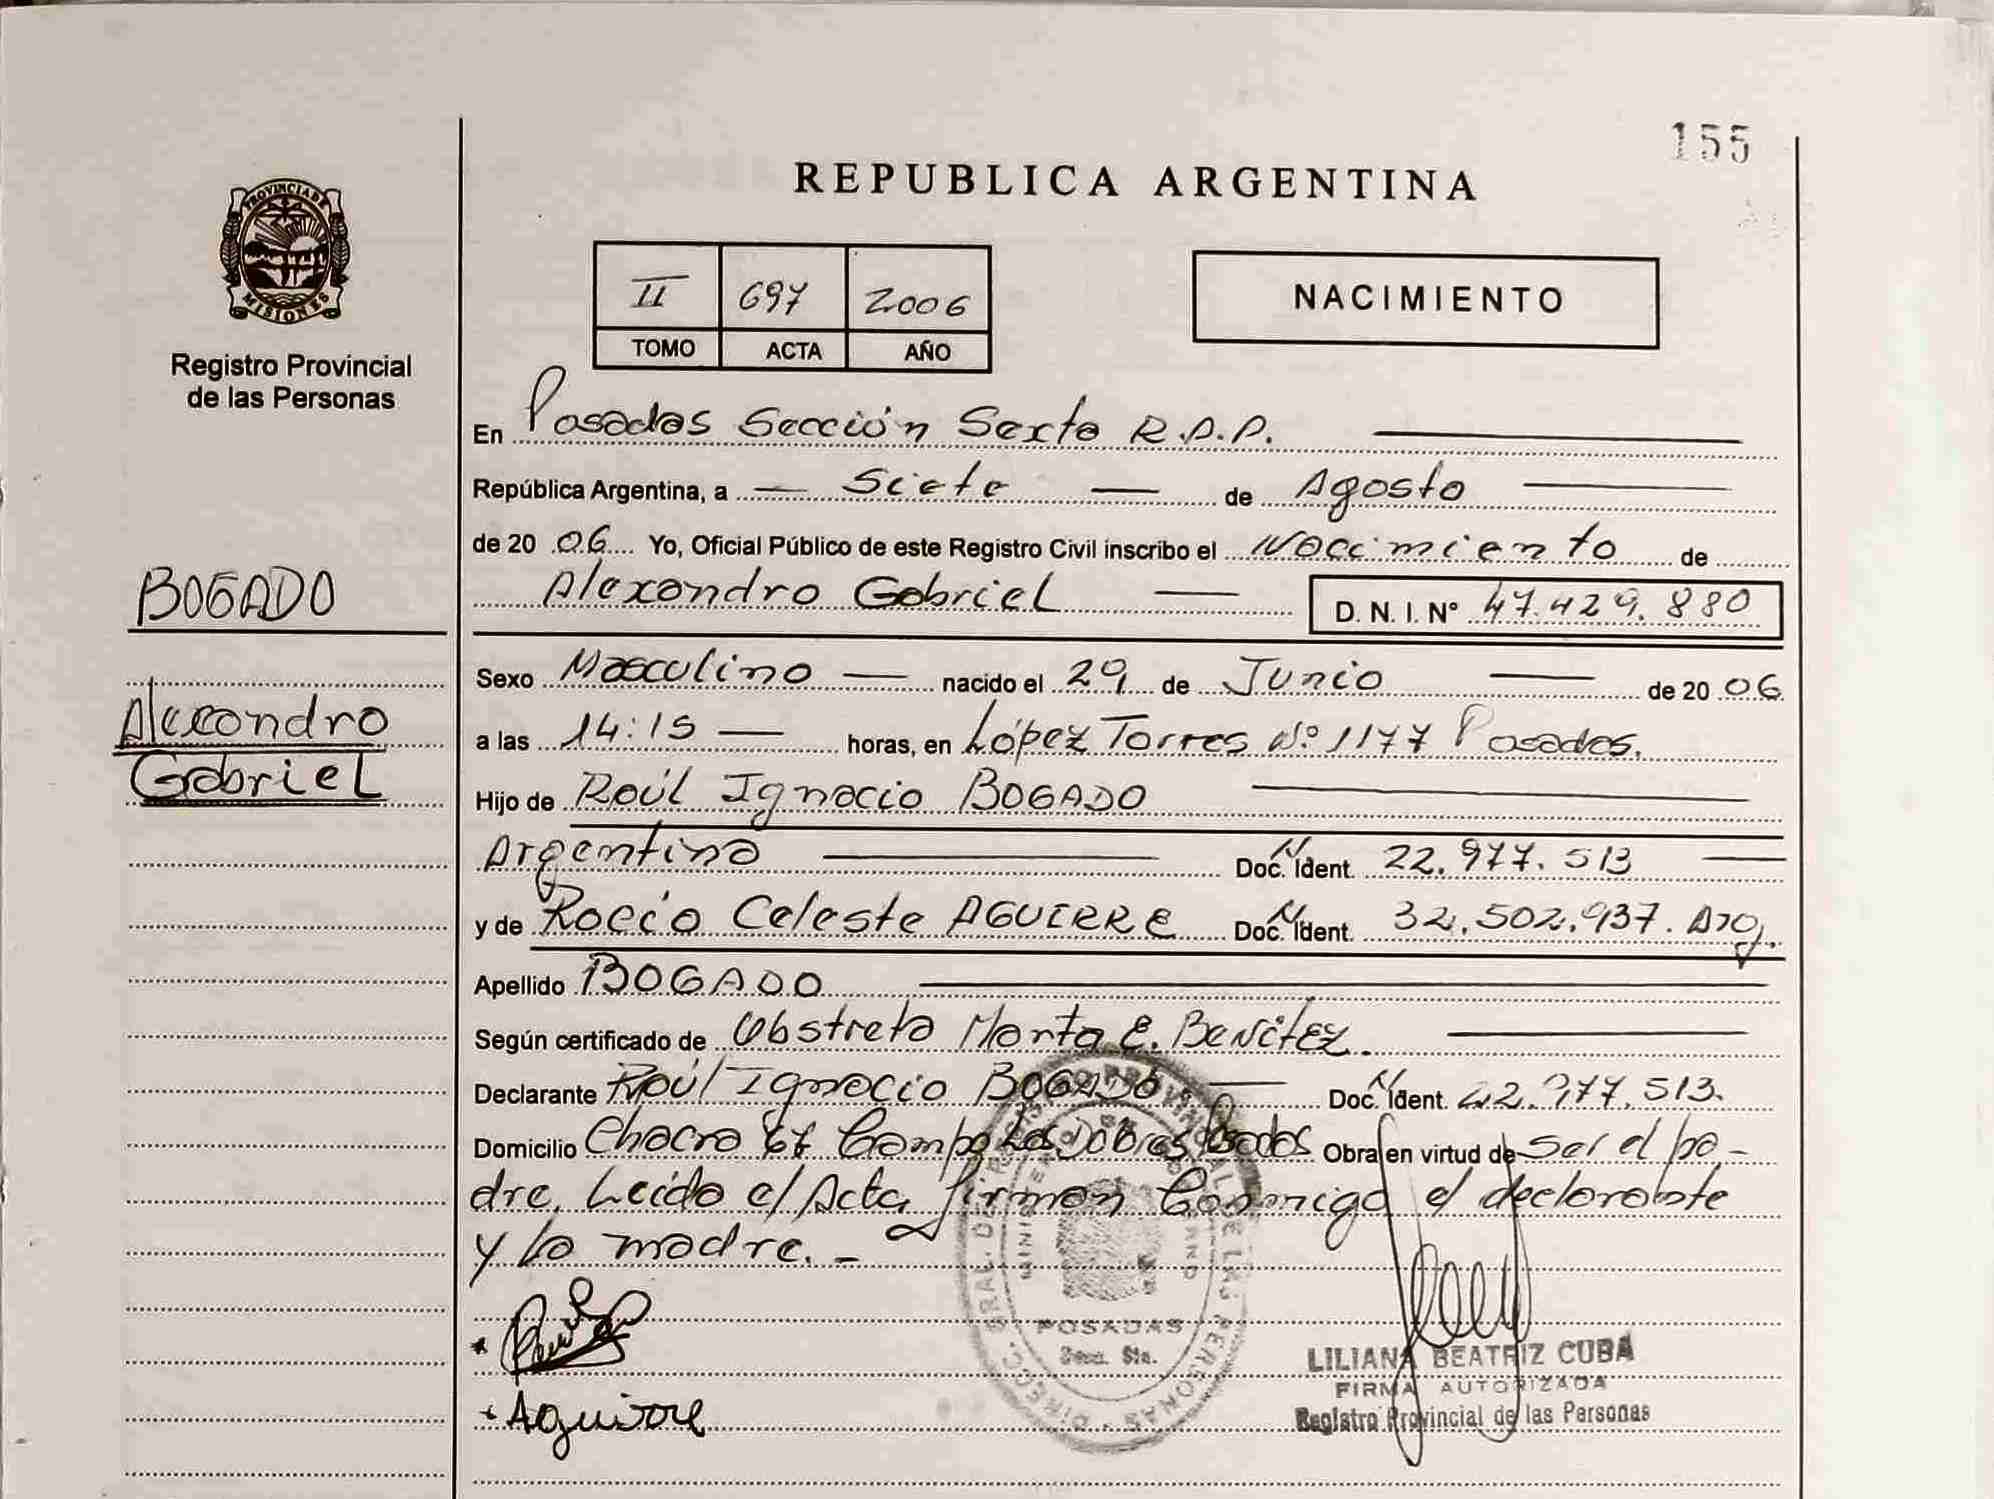 155
REPUBLICA ARGENTINA
PROVINCIA DE
MISIONES
Registro Provincial
de las Personas
II 697 2006
TOMO ACTA AÑO
NACIMIENTO
En Posadas Sección Sexta R.P.P.
República Argentina, a — Siete — de Agosto
de 20 06 Yo, Oficial Público de este Registro Civil inscribo el Nacimiento de
BOGADO
Alexandro Gabriel — D. N. I. N° 47.429.880
Sexo Masculino — nacido el 29 de Junio — de 20 06
Alexandro
a las 14:15 — horas, en López Torres Nº 1177 Posadas.
Gabriel
Hijo de Raúl Ignacio BOGADO
Argentino — Doc. N Ident. 22.977.513
y de Rocío Celeste AGUIRRE Doc. N Ident. 32.502.937. Arg.
Apellido BOGADO
Según certificado de Obstreta Marta E. Benitez.
Declarante Raúl Ignacio BOGADO. — Doc. N Ident. 22.977.513.
Domicilio Chacra Posadas Obra en virtud de Ser el pa-
dre. Leído el Acta, firman Conmigo el declarante
y la madre. -
POSADAS
Secc. 6ta.
LILIANA BEATRIZ CUBA
FIRMA AUTORIZADA
Registro Provincial de las Personas
Aguirre